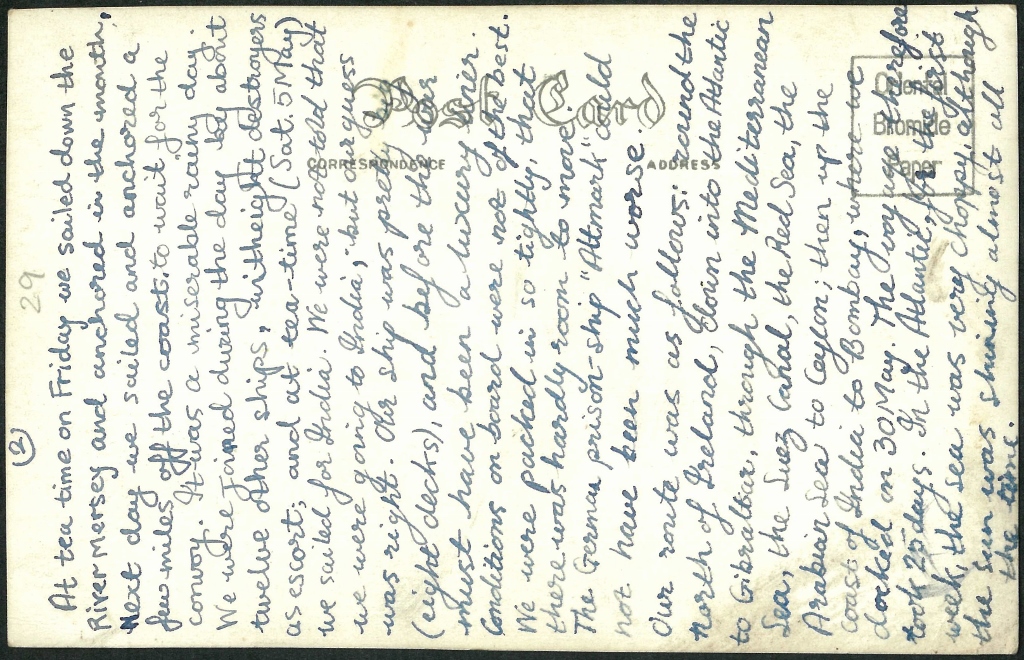 29
(2)
At tea time on Friday we sailed down the
River Mersey and anchored in the mouth,
Next day we sailed and anchored a
few miles off the coast: to wait for the
convoy. It was a miserable rainy day.
We were joined during the day by about
twelve other ships, with eight destroyers
as escort; and at tea-time (Sat. 5 May)
we sailed for India. We were not told that
we were going to India, but our guess
was right. Our ship was pretty big
(eight decks), and before the war
must have been a luxury liner.
Conditions on board were not of the best.
We were packed in so tightly, that
there was hardly room to move.
The German prison-ship "Altmark" could
not have been much worse.
Our route was as follows: round the
north of Ireland, down into the Atlantic
to Gibraltar, through the Mediterranean
Sea, the Suez Canal, the Red Sea, the
Arabian Sea to Ceylon; then up the
coast of India to Bombay, where we
docked on 30 May. The voyage therefore
took 25 days. In the Atlantic, for the first
week, the sea was very choppy, although
the sun was shining almost all
the time.
Post Card
CORRESPONDENCE
ADDRESS
Oriental
Bromide
Paper